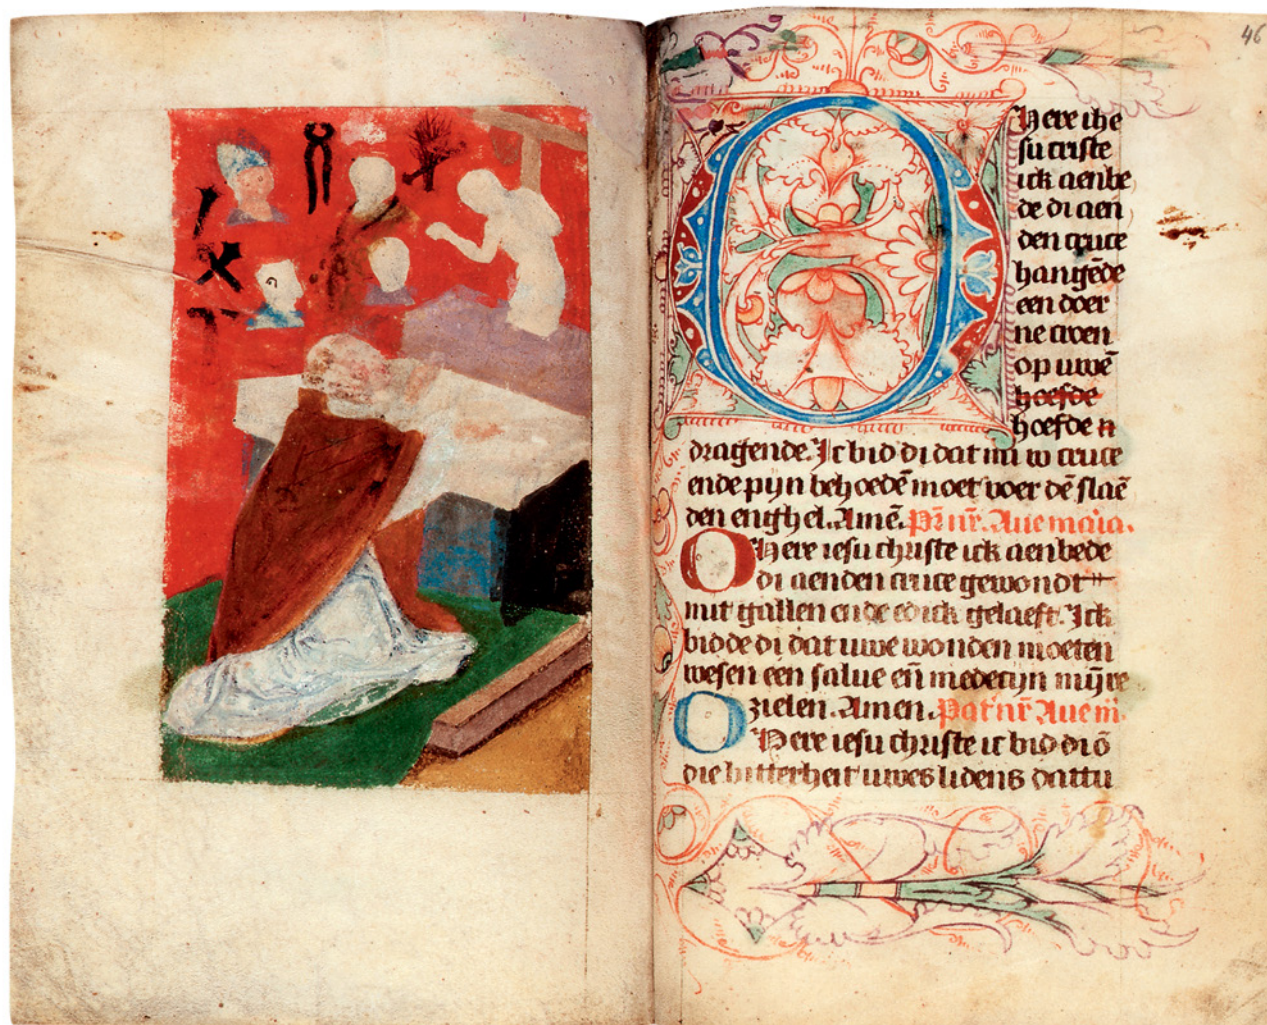 46
O Here ihe
su criste
ick aenbe
de di aen
den cruce
hangēde
een doer
ne croen
op uwē
hoefde
hoefde n
dragende. Ic bid di dat mi w cruce
ende pijn behoedē moet voer dē slaē
den enghel. Amē. Pr̄ nr̄. Aue maria.
O Here iesu christe ick aenbede
di aenden cruce gewondt
mit gallen ende edick gelaeft. Ick
bidde di dat uwe wonden moeten
wesen een salue en̄ medecijn mijre
zielen. Amen. Pat' nr̄ Aue m̄.
O Here iesu christe ic bid di ō
die bitterheit uwes lidens dattu